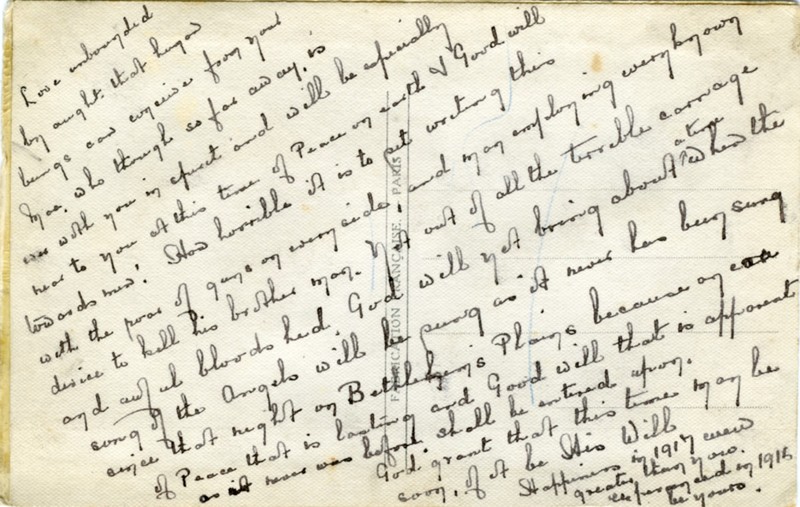 Love unbounded
by aught that human
beings can conceive from your
who though so far away, is
ever with you in spirit and will be especially
near to you at this time of Peace on earth & Good will
towards men! How horrible it is to sit writing this
with the roar of guns on every side, and man employing every known
device to kill his brother man. Yet out of all the terrible carnage
and awful bloodshed God will yet bring about a time when the
song of the Angels will be sung as it never has been sung
since that night on Bethlehem's Plains because an era
of Peace that is lasting and Good will that is apparent
as it never was before shall be entered upon.
God grant that this time may be
soon, if it be His Will
Happiness in 1917 even
greater than you
experienced in 1916
be yours.
FABRICATION FRANÇAISE. PARIS